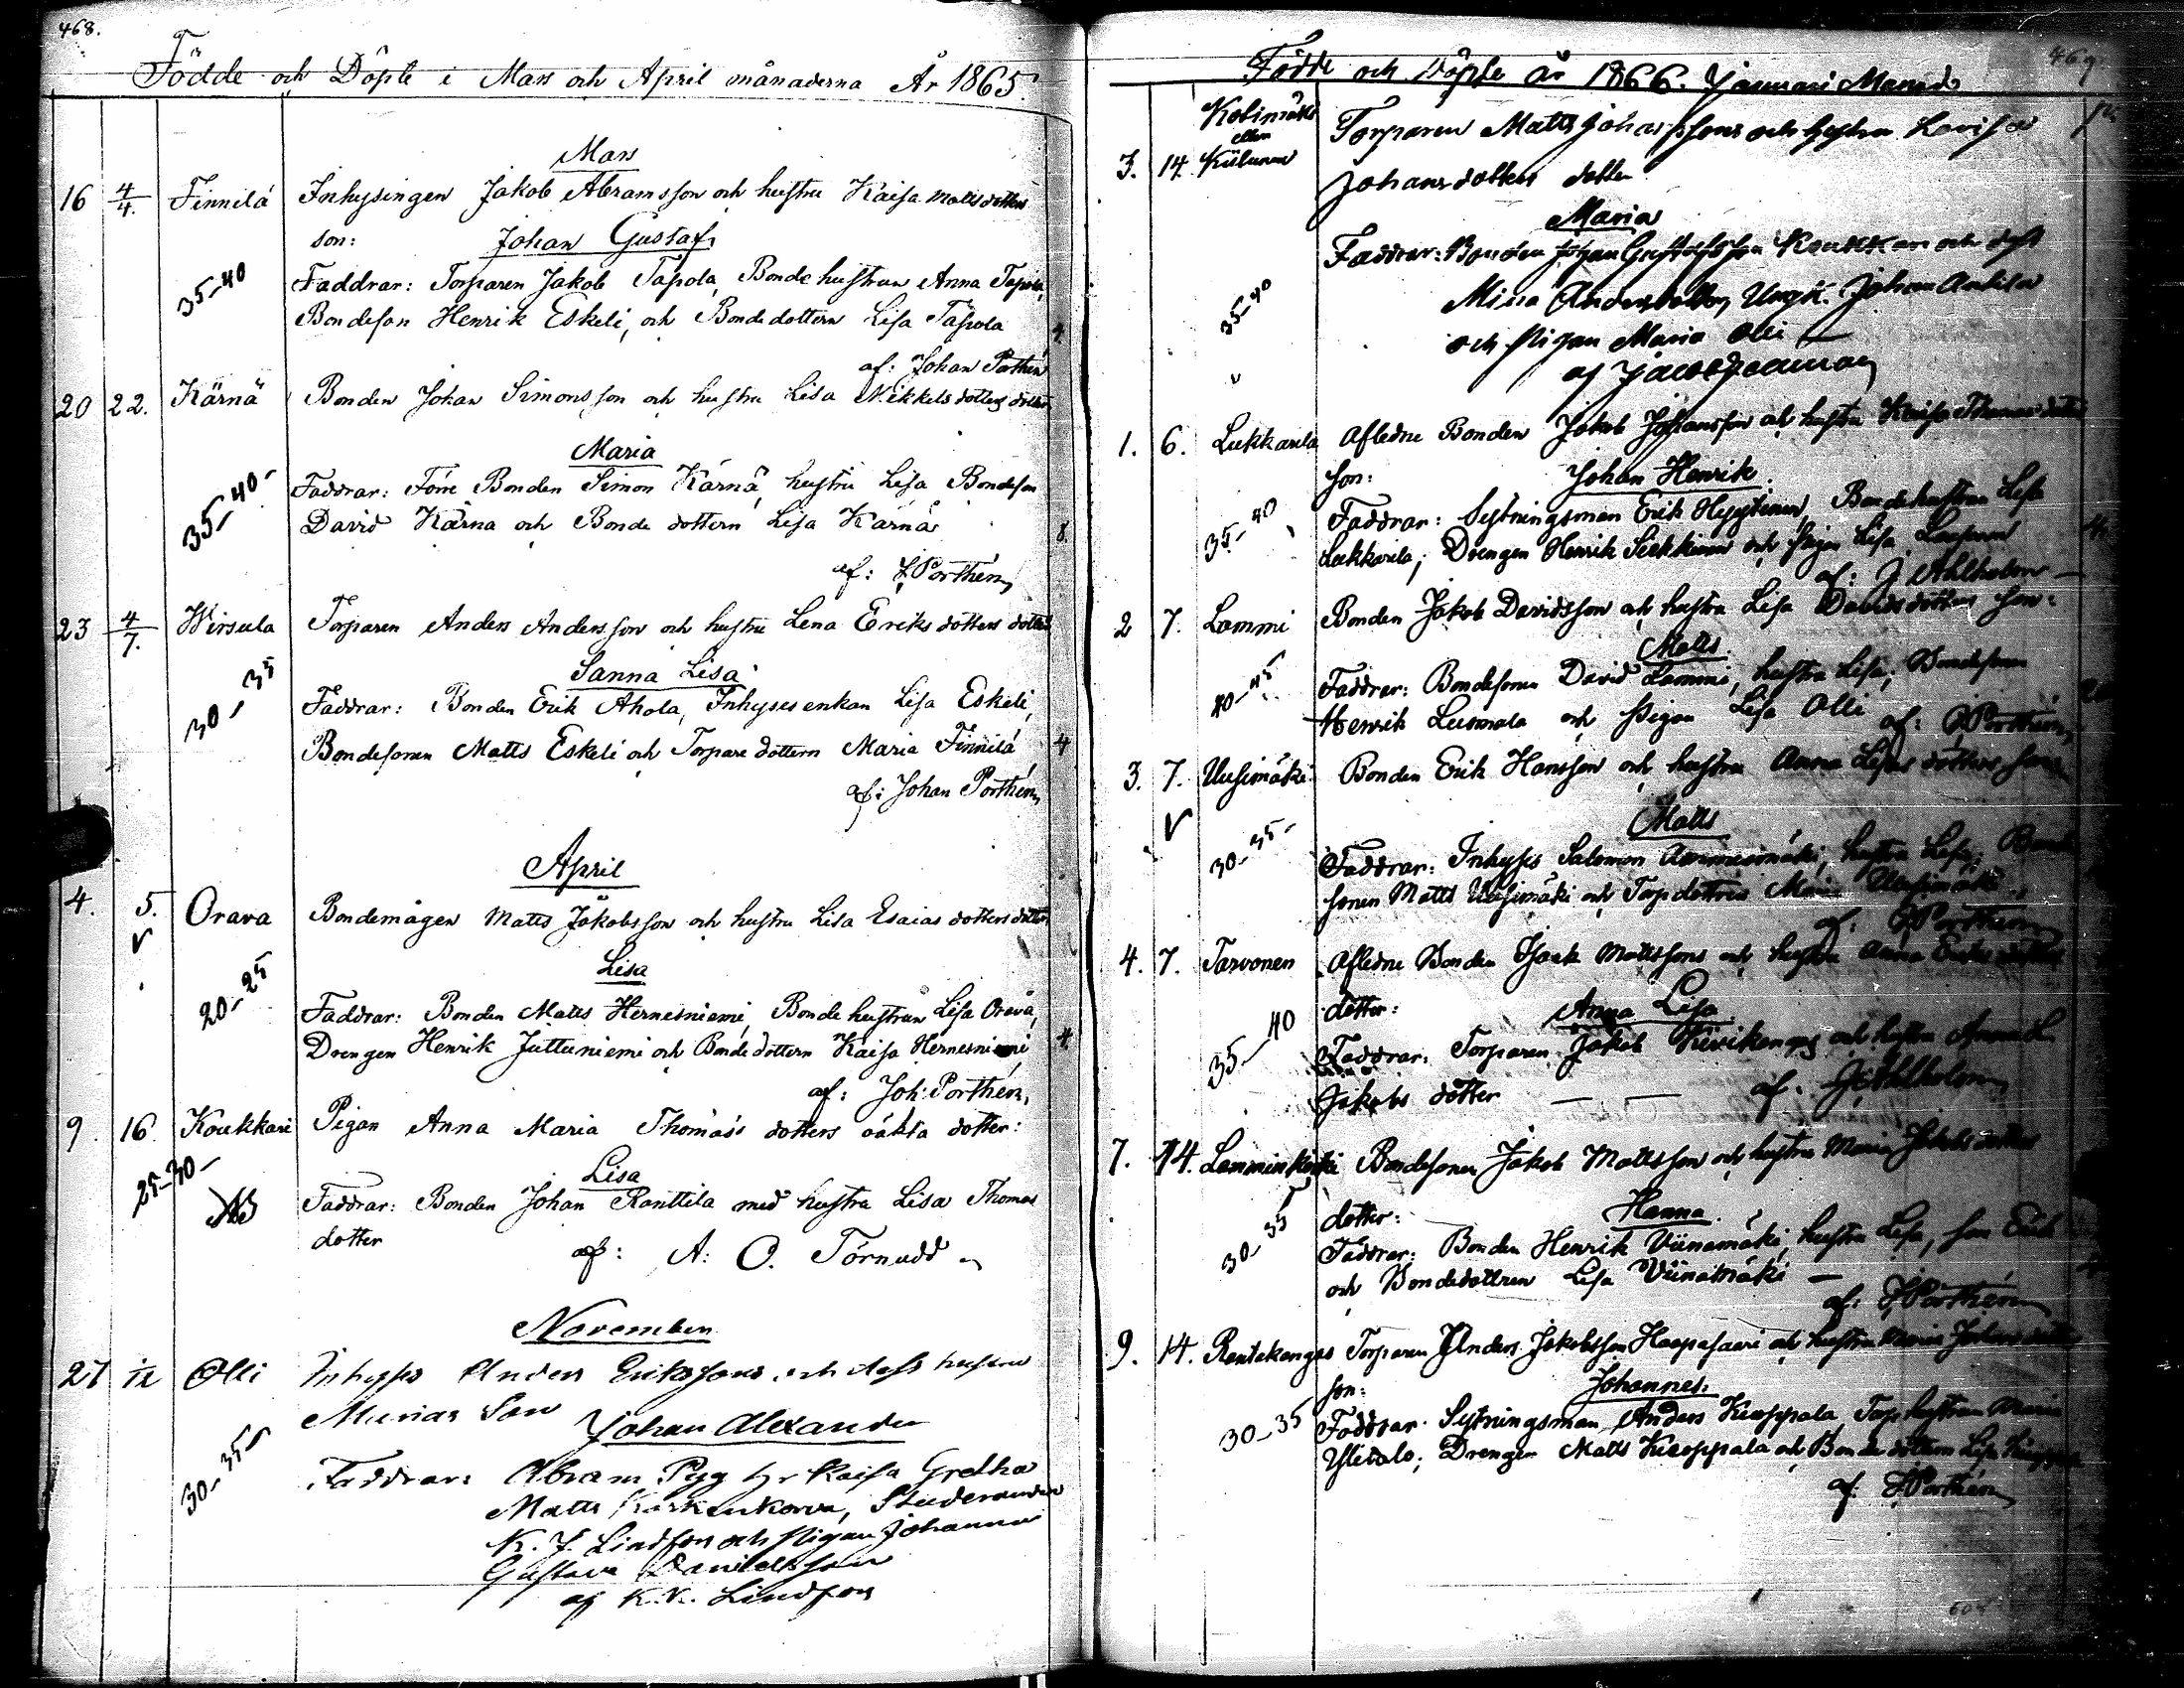 468.
Födde och Döpte i Mars och April månaderna År 1865.
Mars
16 4/4. Finnilä Inhysingen Jakob Abramsson och hustru Kaisa Mattsdotters
son: Johan Gustaf
35-40 Faddrar: Torparen Jakob Tapola, Bondehustrun Anna Tapola,
Bondeson Henrik Eskeli, och Bondedottern Lisa Tapola 4.
af: Johan Porthén
20 22. Kärnä Bonden Johan Simonsson och hustru Lisa Mikkelsdotters dotter
Maria
35-40- Faddrar: Förre Bonden Simon Kärnä, hustru Lisa Bondeson
David Kärnä och Bonde dottern Lisa Kärnä 8.
af: J Porthén
23 4/7. Wirsula Torparen Anders Andersson och hustru Lena Eriks dotters dotter
Sanna Lisa
30-35 Faddrar: Bonden Erik Ahola, Inhysesenkan Lisa Eskeli,
Bondesonen Matts Eskeli och Torpare dottern Maria Finnilä 4
af: Johan Porthén
April
4. 5. Orava Bondemågen Matts Jakobsson och hustru Lisa Esaias dotters dotter
Lisa
20-25 Faddrar: Bonden Matts Hernesniemi, Bonde hustrun Lisa Orava,
Drengen Henrik Juttuniemi och Bonde dottern Kaisa Hernesniemi 4
af: Joh: Porthén,
9. 16. Koukkari Pigan Anna Maria Thomas dotters oäkta dotter:
25-30- Lisa
Faddrar: Bonden Johan Ranttila med hustru Lisa Thomas
dotter af: A. O. Törnudd
November
27 1/12 Olli Inhyses Anders Erikssons och dess hustru
Marias Son Johan Alexander
30-35 Faddrar: Abram Pyy hr Kaisa Gretha
Matts Karkukorva, Studeranden
K. J. Lindfors och pigan Johanna
Gustava Danielsson
af K. V. Lindfors
469.
Födde och Döpte år 1866. Januari Månad
Kotimäki
eller
3. 14. Torparen Matts Johanssons och hustru Lovisa
Johansdotters dotter
Maria
Faddrar: Bonden Johan Gustafsson Koukkari och dess
35-40 Mina Andersdotter, Ungk. Johan Antila
och Pigan Maria Olli
af
1. 6. Lukkarila Afledne Bonden Jakob Johansson och hustru Kaisa Thomas dotters
son: Johan Henrik
35-40 Faddrar: Sytningsman Erik Hyytinen, Bondehustrun Lisa
Lukkarila, Drengen Henrik Sirkkinen och Pigan Lisa
af: J. Ahlholm
2 7. Lammi Bonden Jakob Davidsson och hustru Lisa Davids dotters son:
Matts
40-45 Faddrar: Bondesonen David Lammi, hustru Lisa, Bondesonen
Henrik Lusmala och Pigan Lisa Olli af: J Porthén
3. 7. Uusimäki Bonden Erik Hansson och hustru Anna dotters son
Matts
30-35- Faddrar: Inhyses Salomon, hustru Lisa, Bonde
sonen Matts Uusimäki och Torpdottren Maria Uusimäki
af: J Porthén
4. 7. Tarvonen Afledne Bonden Isak Mattssons och hustru Anna Eriks dotters
dotter: Anna Lisa
35-40 Faddrar: Torparen Jakob Kivikangas och hustru Anna L.
Jakobs dotter af: J. Ahlholm
7. 14. Lamminkoski Bondesonen Jakob Mattsson och hustru Maria Jakobs dotters
dotter: Hanna
30-35 Faddrar: Bonden Henrik Viinamäki, hustru Lisa, son Erik
och Bondedottren Lisa Viinamäki
af: J Porthén
9. 14. Rantakangas Torparen Anders Jakobsson Haapasaari och hustru Maria Johans dotters
son: Johannes
30-35 Faddrar: Sytningsman Anders Kuoppala, Torp hustrun Maria
Ylitalo, Drengen Matts Kuoppala och Bonde dottern Lisa
af: J Porthén